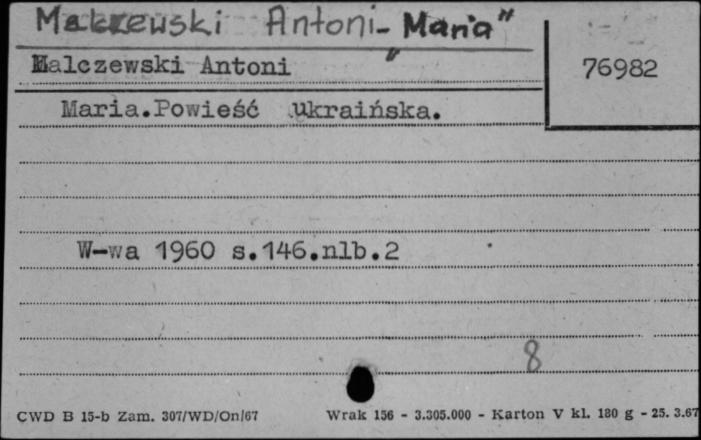 Malczewski Antoni - "Maria"
Malczewski Antoni
76982
Maria.Powieść ukraińska.
W-wa 1960 s.146.nlb.2
8
CWD B 15-b Zam. 307/WD/On/67 Wrak 156 - 3.305.000 - Karton V kl. 180 g - 25. 3.67